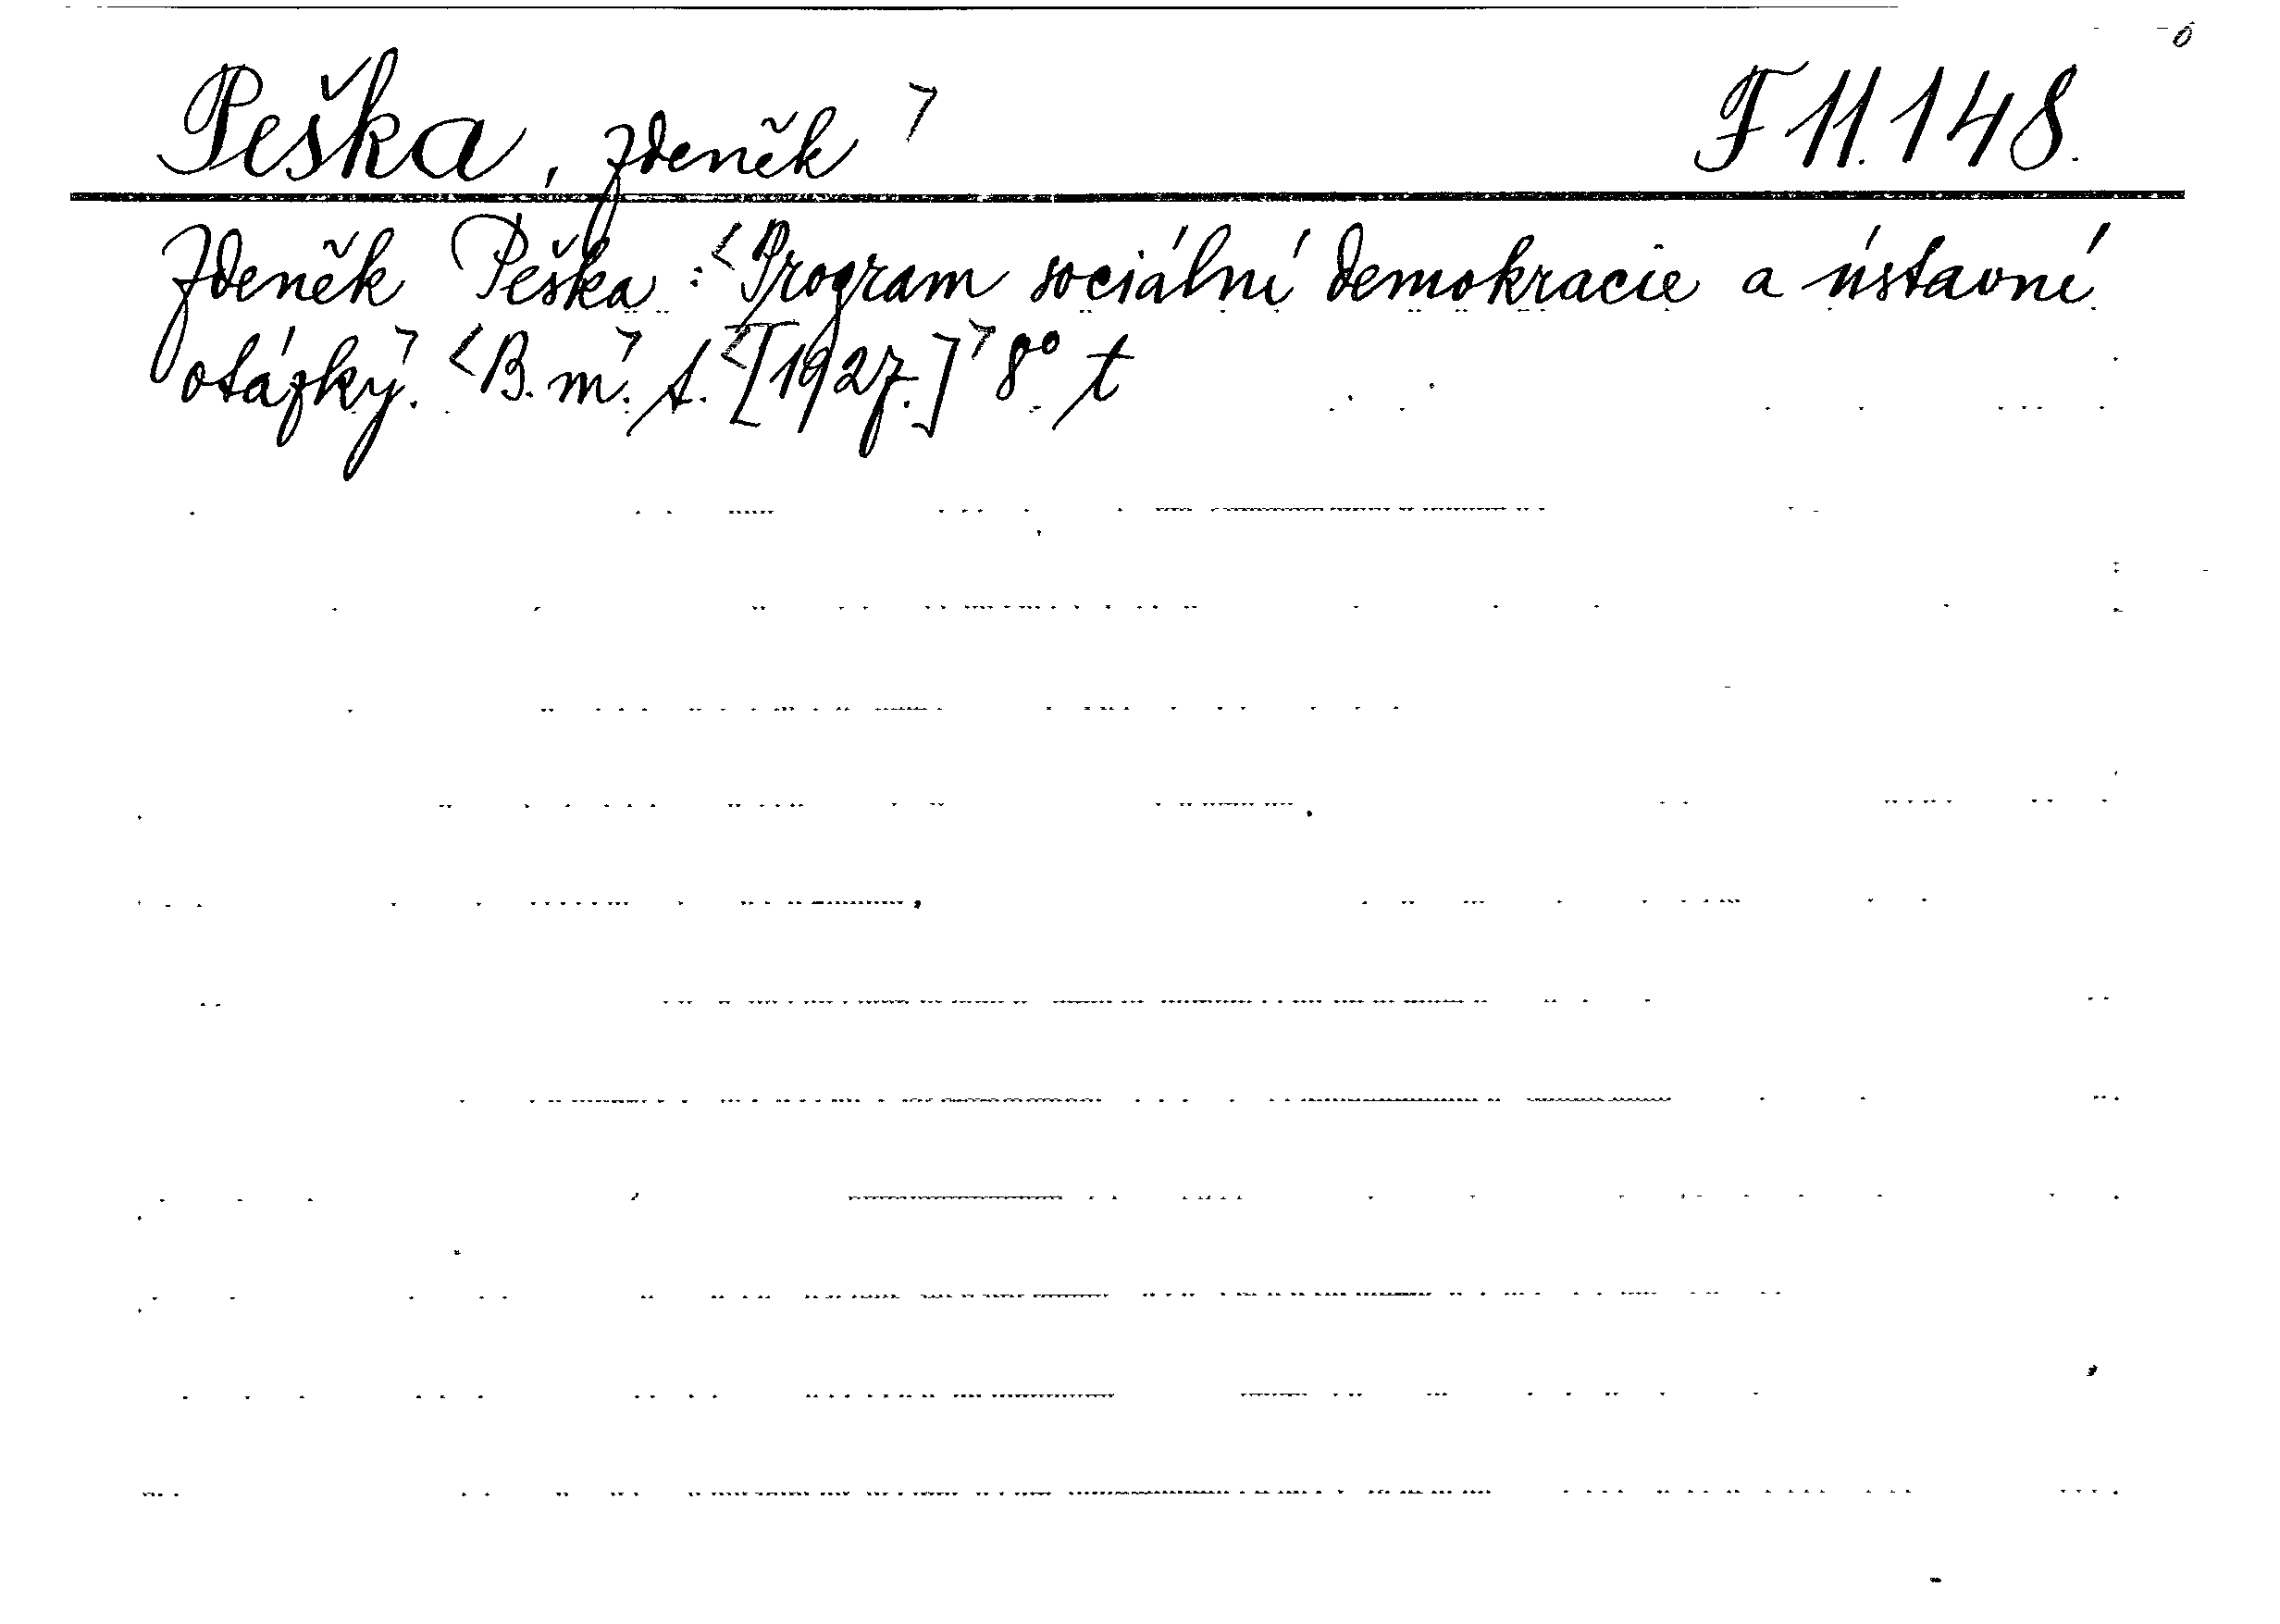 Peška, Zdeněk > F 11.148.
Zdeněk Peška: <Program sociální demokracie a ústavné
otázky.> <B. m.> t. <[1927.]> 8° t